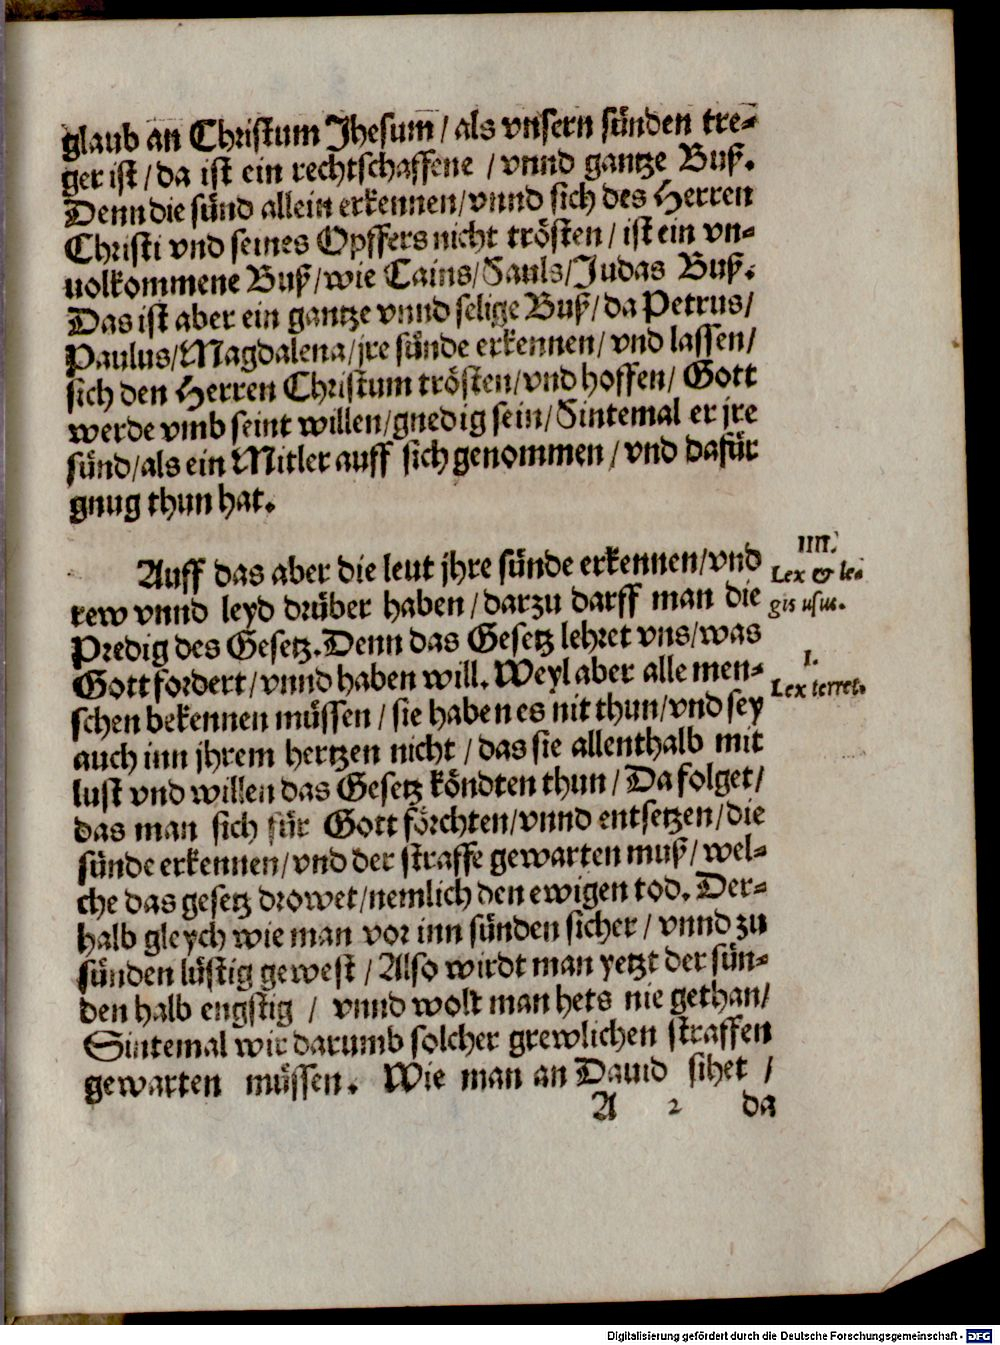 glaub an Christum Jhesum̅ / als vnsern sünden tre⸗
ger ist / da ist ein rechtschaffene / vnnd gantze Buß.
Denn die sünd allein erkennen / vnnd sich des Herren
Christi vnd seines Opffers nicht trösten / ist ein vn⸗
uolkommene Buß / wie Cains / Sauls / Judas Buß.
Das ist aber ein gantze vnnd selige Buß / da Petrus /
Paulus / Magdalena / jre sünde erkennen / vnd lassen /
sich den Herren Christum trösten / vnd hoffen / Gott
werde vmb seint willen / gnedig sein / Sintemal er jre
sünd / als ein Mitler auff sich genommen / vnd dafür
gnug thun hat.
Auff das aber die leut jhre sünde erkennen / vnd
rew vnnd leyd drüber haben / darzu darff man die
Predig des Gesetz. Denn das Gesetz lehret vns / was
Gott fordert / vnnd haben will. Weyl aber alle men⸗
schen bekennen müssen / sie haben es nit thun / vnd sey
auch inn jhrem hertzen nicht / das sie allenthalb mit
lust vnd willen das Gesetz köndten thun / Da folget /
das man sich für Gott förchten / vnnd entsetzen / die
sünde erkennen / vnd der straffe gewarten muß / wel⸗
che das gesetz drowet / nemlich den ewigen tod. Der⸗
halb gleych wie man vor inn sünden sicher / vnnd zu
sünden lüstig gewest / Also wirdt man yetzt der sün⸗
den halb engstig / vnnd wolt man hets nie gethan /
Sintemal wir darumb solcher grewlichen straffen
gewarten müssen. Wie man an Dauid sihet /
A 2 da
IIII.
Lex & le⸗
gis usus.
I.
Lex terret.
Digitalisierung gefördert durch die Deutsche Forschungsgemeinschaft - DFG